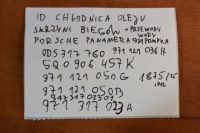 ID CHŁODNICA OLEJU
SKRZYNI BIEGÓW + PRZEWODY WODY
PORSCHE PANAMERA 971 POMPKA
0D5 317 760 971 121 096 H
5Q0 906 457 K
971 121 050 G 1875/25
971 121 050 B
971 317 023 01
971 317 023 A